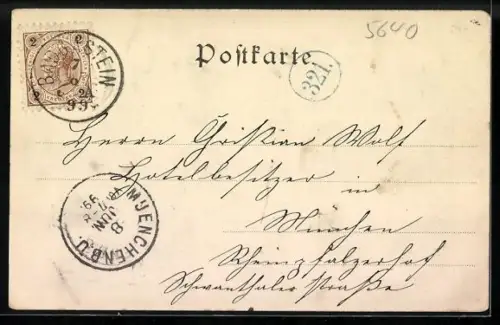 5640
2 2
BAUMSTEIN
7
6
99
Postkarte
321.
Herrn Christian Wolf
Hotelbesitzer in
München
Rheinpfalzerhof
Schwanthaler straße
MUENCHEN B.D.
8
JUN.
99.